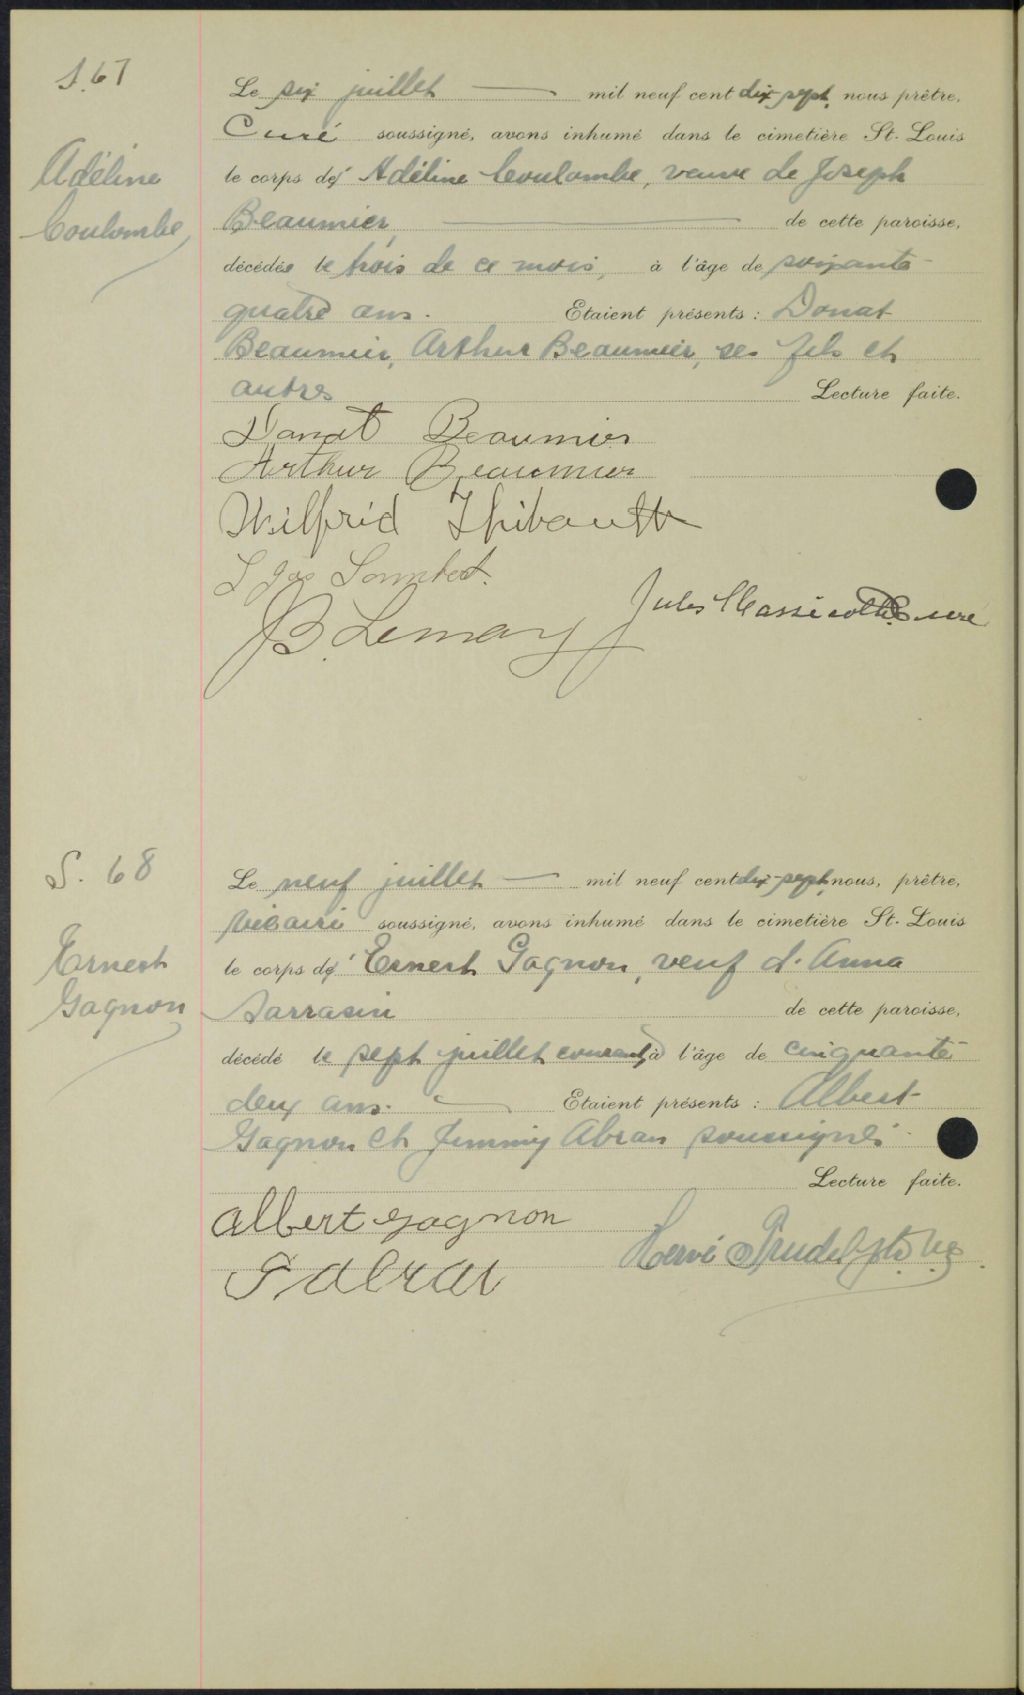 S. 67
Adéline
Coulombe,
Le six juillet mil neuf cent dix-sept, nous prêtre,
Curé soussigné, avons inhumé dans le cimetière St. Louis
le corps de Adéline Coulombe, veuve de Joseph
Beaumier, de cette paroisse,
décédée le trois de ce mois, à l'âge de soixante-
quatre ans. Etaient présents : Donat
Beaumier, Arthur Beaumier, ses fils et
autres Lecture faite.
Donat Beaumier
Arthur Beaumier
Wilfrid Thibault
Lambert.
Jules Massicotte Curé
JB. Lemay
S. 68
Ernest
Gagnon
Le neuf juillet mil neuf cent dix-sept, nous, prêtre,
vicaire soussigné, avons inhumé dans le cimetière St. Louis
le corps de Ernest Gagnon, veuf d'Anna
Sarrasin de cette paroisse,
décédé le sept juillet courant, à l'âge de cinquante-
deux ans. Etaient présents : Albert
Gagnon et Jimmy Abran soussignés
Lecture faite.
Albert Gagnon
Hervé Trudel ptre vic.
J Abran